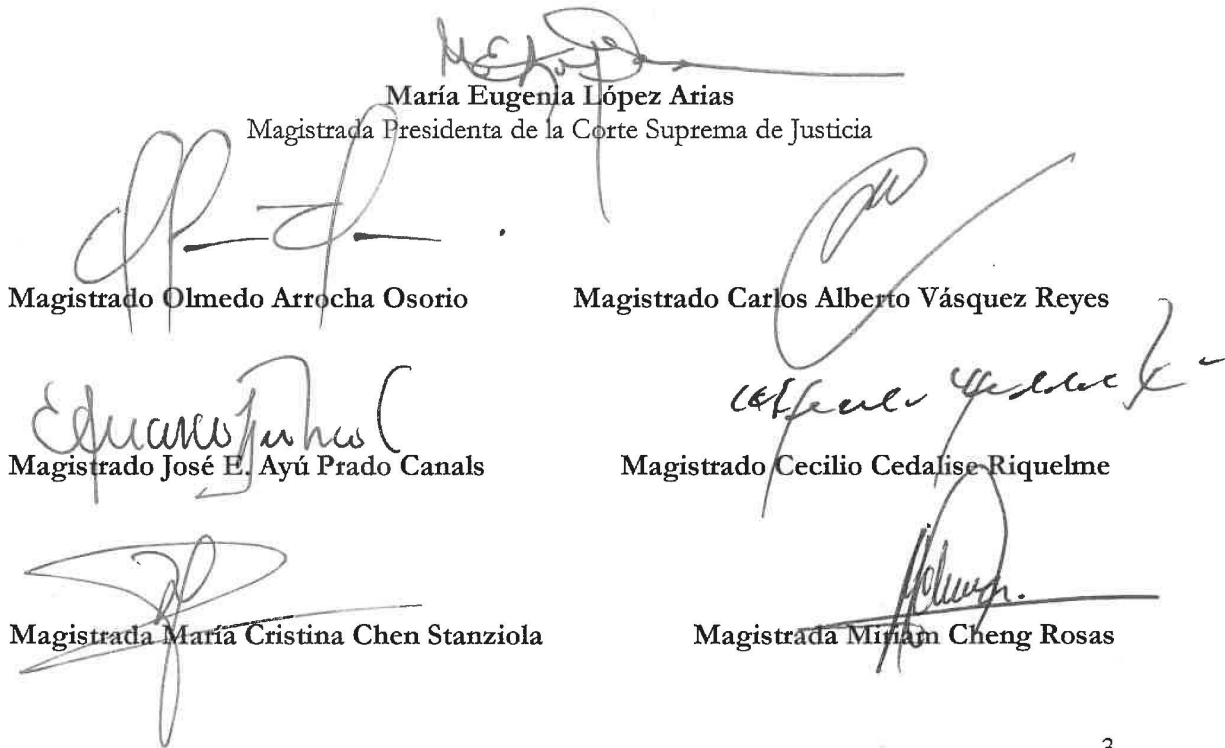 María Eugenia López Arias
Magistrada Presidenta de la Corte Suprema de Justicia
Magistrado Olmedo Arrocha Osorio
Magistrado Carlos Alberto Vásquez Reyes
Magistrado José E. Ayú Prado Canals
Magistrado Cecilio Cedalise Riquelme
Magistrada María Cristina Chen Stanziola
Magistrada Miriam Cheng Rosas
3